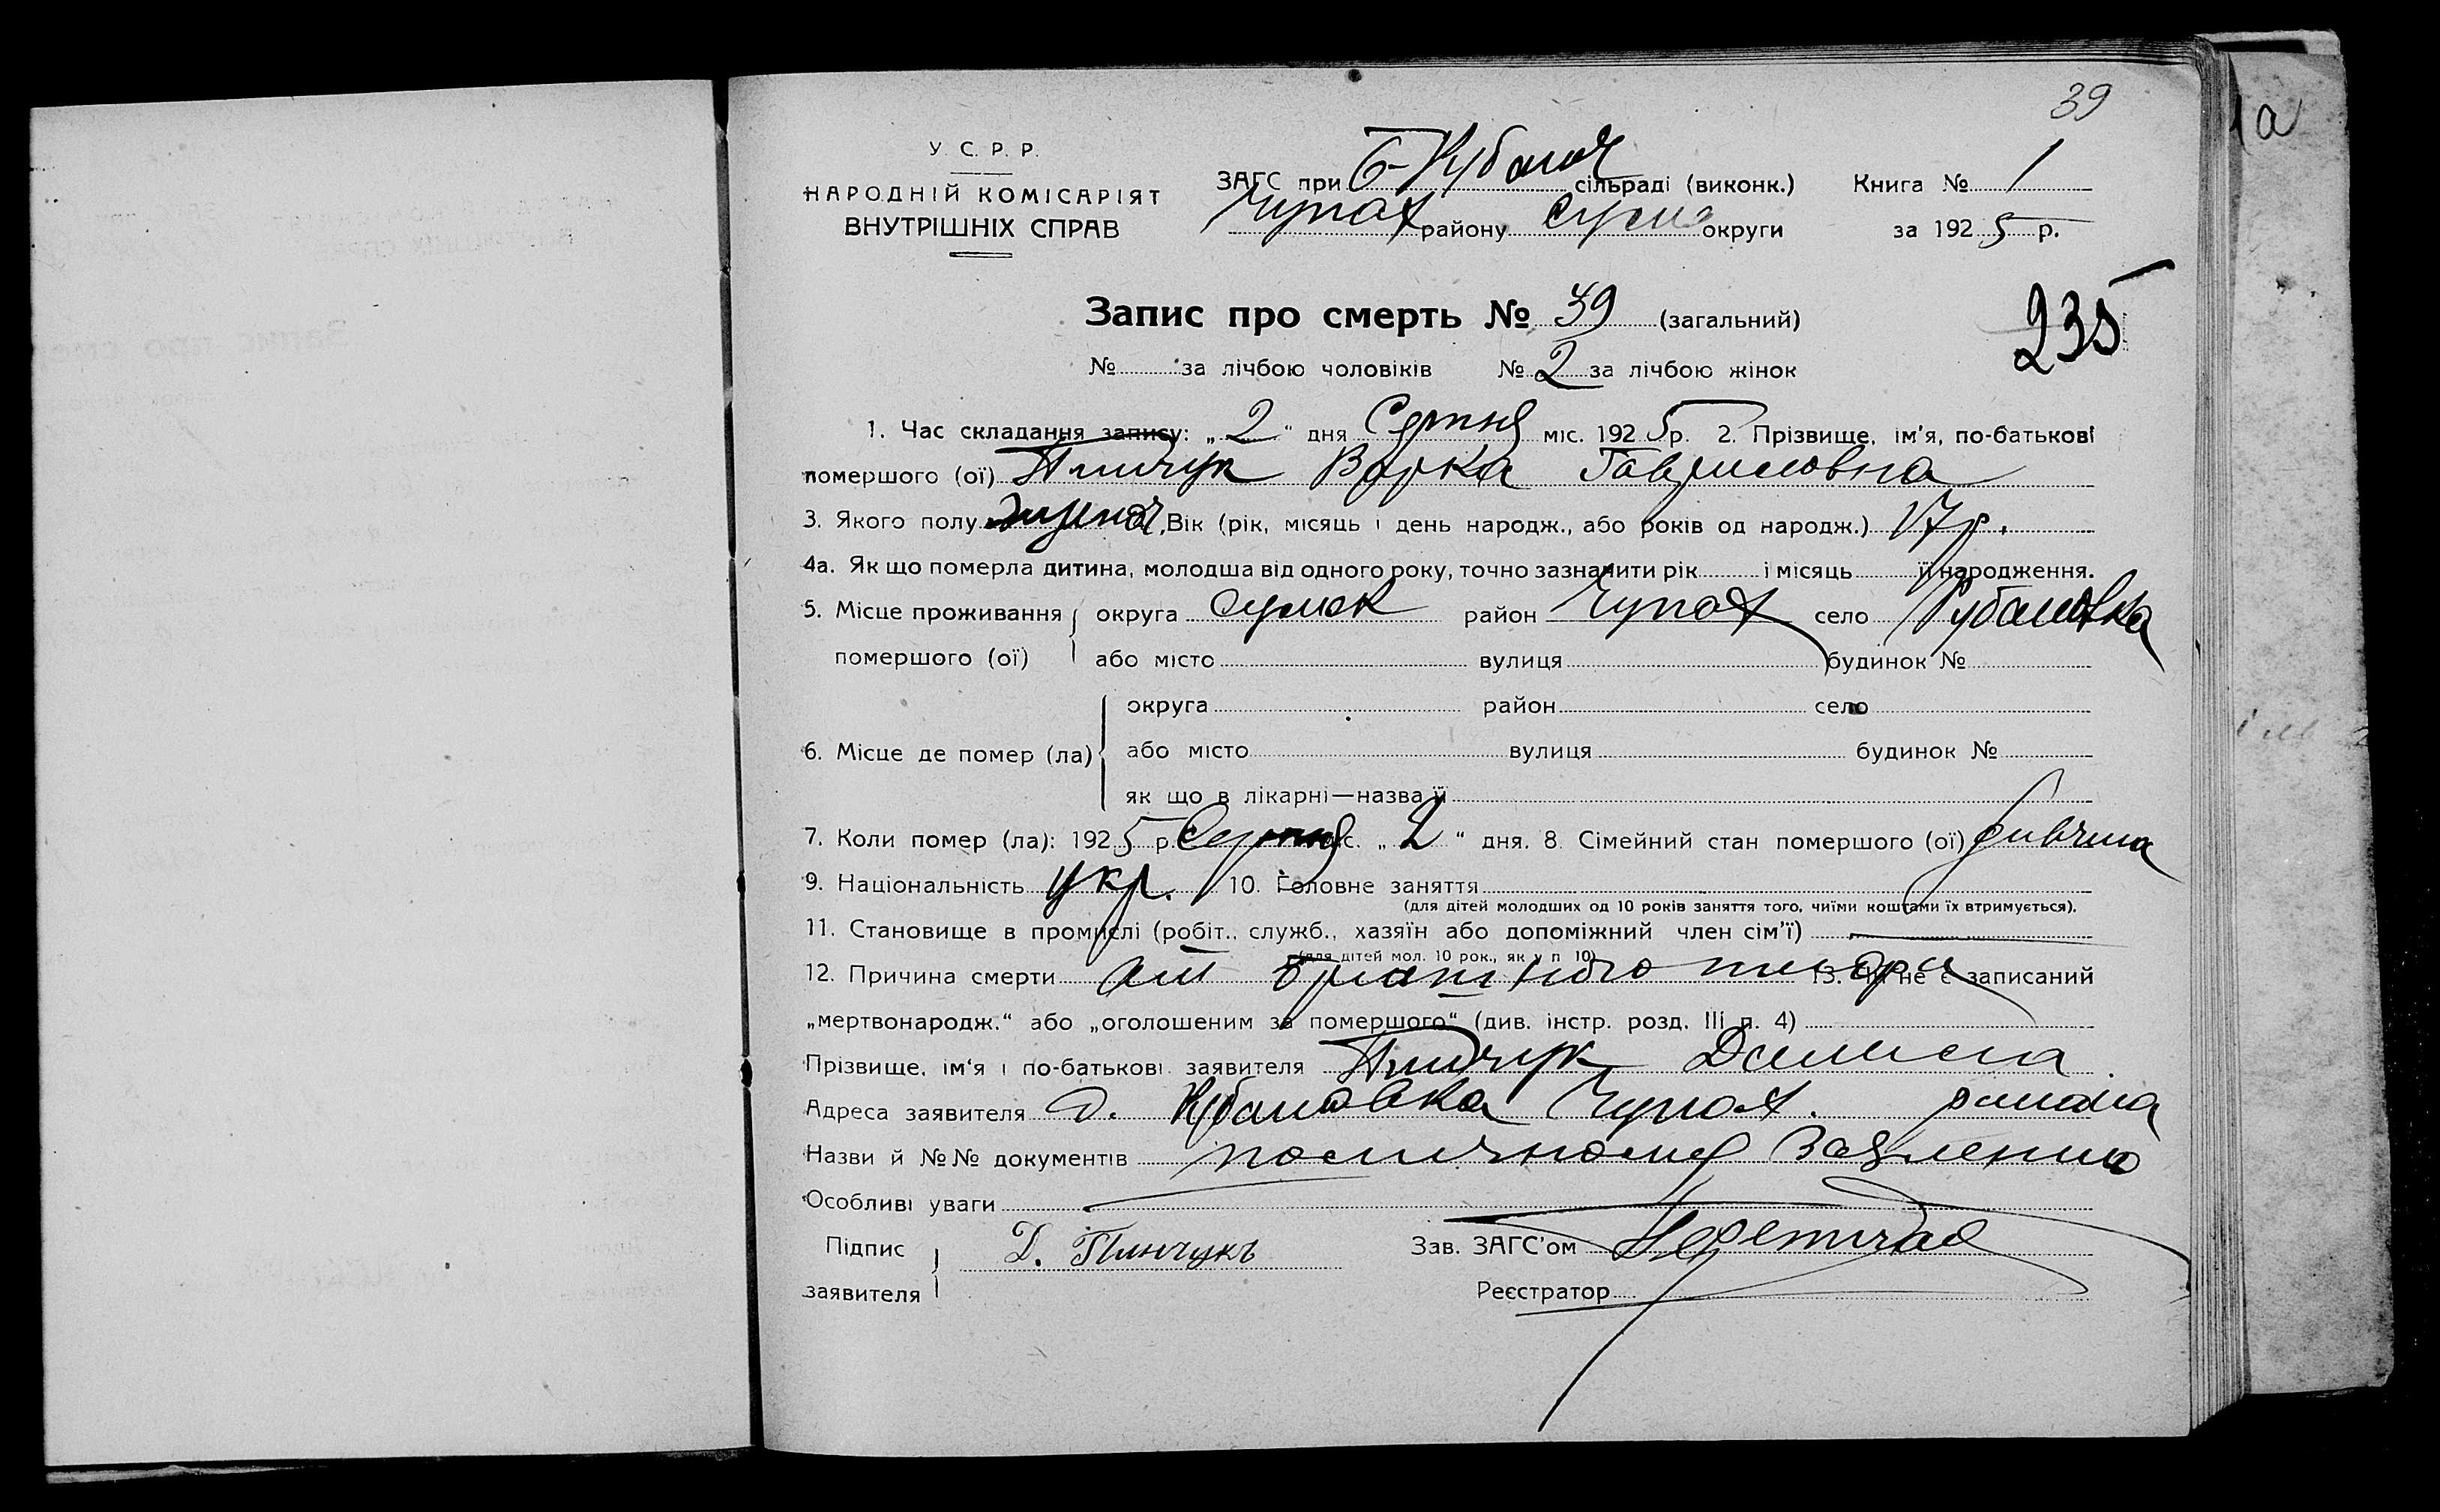 39
1а
У. С. Р. Р.
НАРОДНІЙ КОМІСАРІЯТ
ВНУТРІШНІХ СПРАВ
ЗАГС при сільраді (виконк.) Книга № 1
Чупах району округи за 1925 р.
Запис про смерть № 39 (загальний)
235
№ за лічбою чоловіків № 2 за лічбою жінок
1. Час складання запису: „2“ дня Серпня міс. 1925 р. 2. Прізвище, ім'я, по-батькові
помершого (ої) Пинчук Варка Гавриловна
3. Якого полу Вік (рік, місяць і день народж., або років од народж.) 17 р.
4а. Як що померла дитина, молодша від одного року, точно зазначити рік і місяць її народження.
5. Місце проживання помершого (ої) округа Сумск район Чупах село
або місто вулиця будинок №
6. Місце де помер (ла) округа район село
або місто вулиця будинок №
як що в лікарні—назва її
7. Коли помер (ла): 1925 р. Серпня міс. „2“ дня. 8. Сімейний стан помершого (ої) дивчина
9. Національність укр. 10. Головне заняття
(для дітей молодших од 10 років заняття того, чиїми коштами їх втримується).
11. Становище в промислі (робіт., служб., хазяїн або допоміжний член сім'ї)
(для дітей мол. 10 рок., як у п 10)
12. Причина смерти от тифу 13. Чи не є записаний
„мертвонародж.“ або „оголошеним за помершого“ (див. інстр. розд. III п. 4)
Прізвище, ім'я і по-батькові заявителя Пинчук
Адреса заявителя Чупах. района
Назви й №№ документів по личному заявлению
Особливі уваги
Підпис заявителя Д. Пинчукъ Зав. ЗАГС'ом
Реєстратор